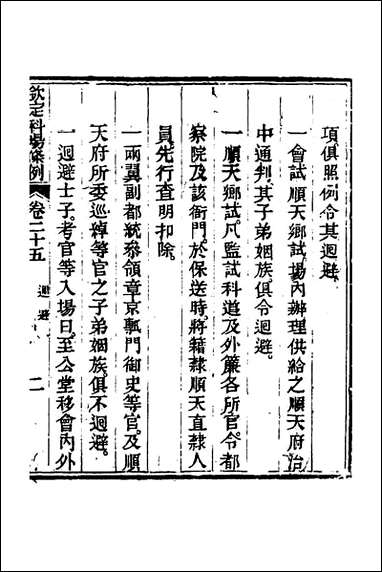 項俱照例令其迴避
一會試順天鄉試場內辦理供給之順天府治
中通判其子弟姻族俱令迴避
一順天鄉試凡監試科道及外簾各所官令都
察院及該衙門於保送時將籍隸順天直隸人
員先行查明扣除
一兩翼副都統叅領章京甎門御史等官及順
天府所委巡綽等官之子弟姻族俱不迴避
一迴避士子考官等入場日至公堂移會內外
欽定科場條例 卷二十五 迴避 二